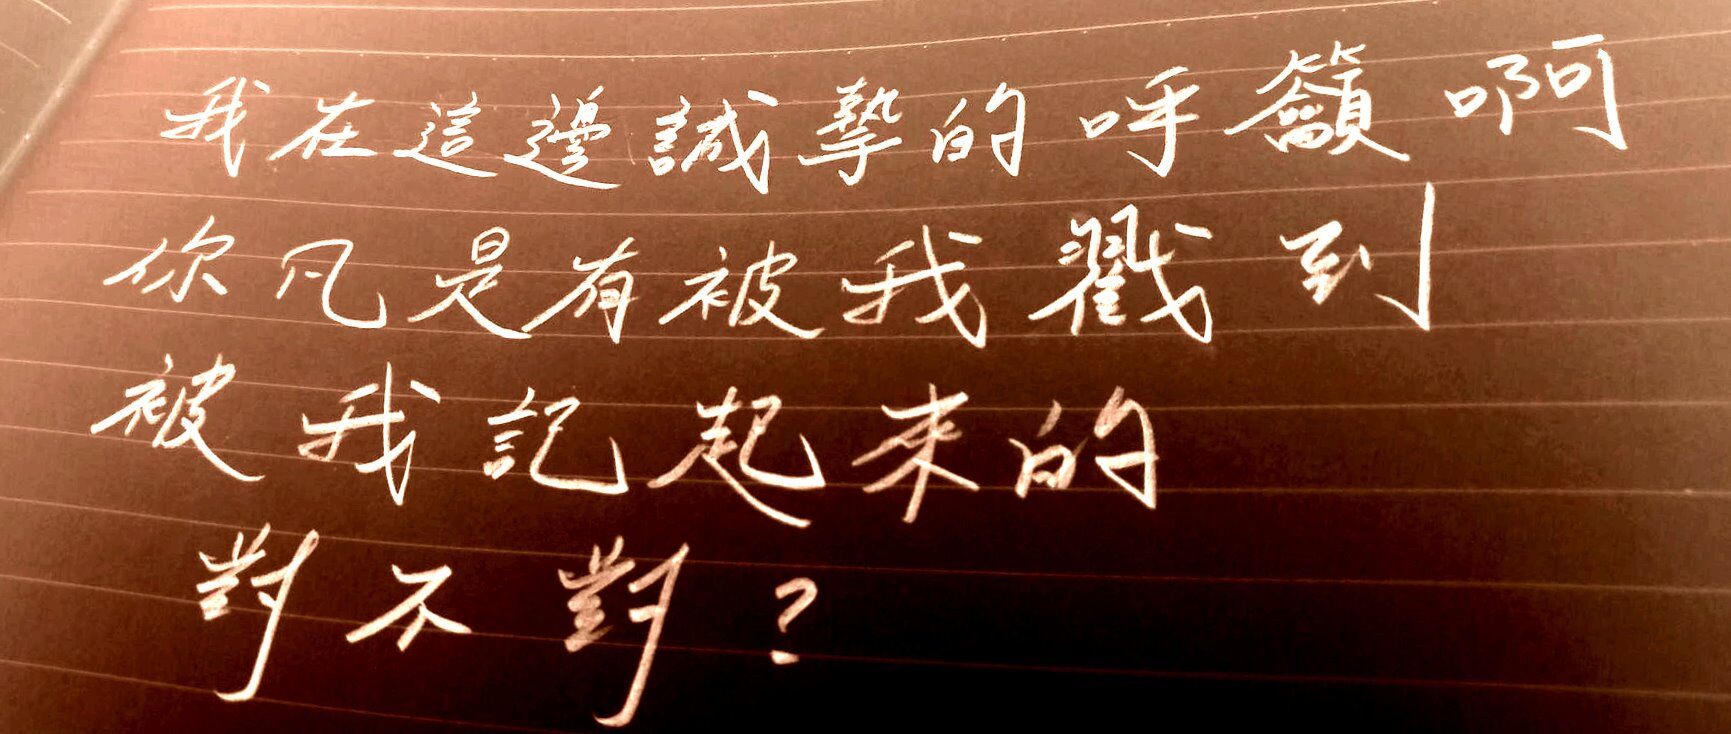 我在這邊誠摯的呼籲啊
你凡是有被我戳到
被我記起來的
對不對?